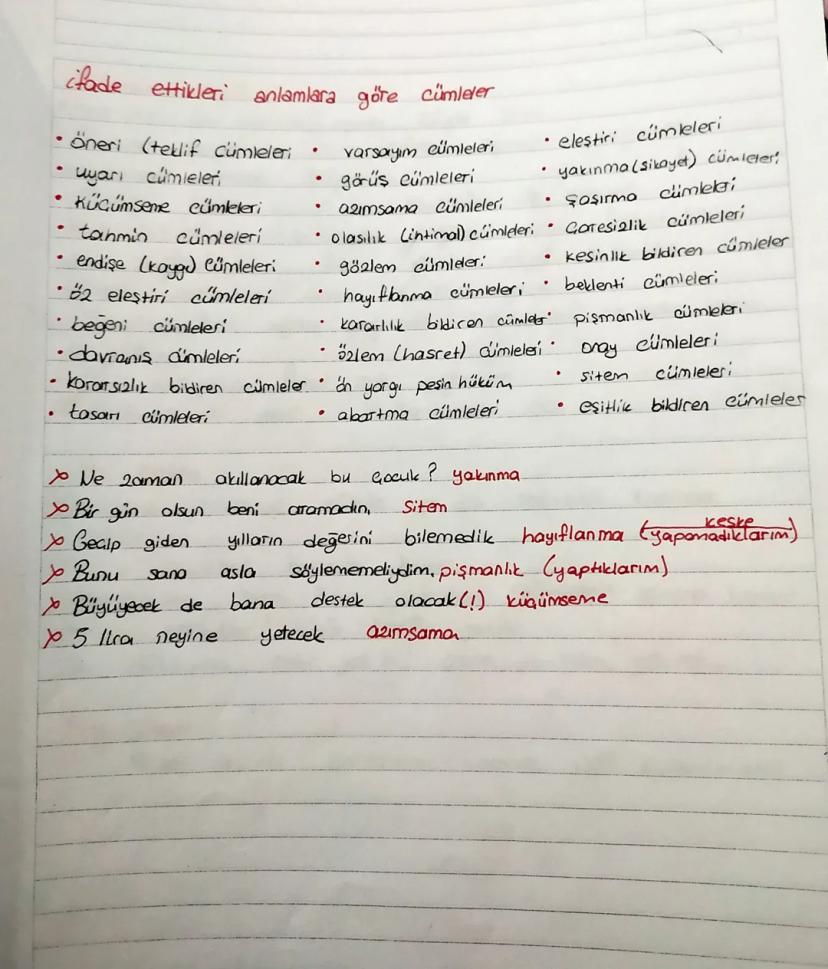 ifade ettikleri anlamlara göre cümleler
• öneri (teklif cümleleri • varsayım cümleleri • eleştiri cümleleri
• uyarı cümleleri • görüş cümleleri • yakınma (şikayet) cümleleri
• küçümseme cümleleri • azımsama cümleleri • şaşırma cümleleri
• tahmin cümleleri • olasılık (ihtimal) cümleleri • çaresizlik cümleleri
• endişe (kaygı) cümleleri • gözlem cümleleri • kesinlik bildiren cümleler
• öz eleştiri cümleleri • hayıflanma cümleleri • beklenti cümleleri
• beğeni cümleleri • kararlılık bildiren cümleler • pişmanlık cümleleri
• davranış cümleleri • özlem (hasret) cümleleri • onay cümleleri
• kararsızlık bildiren cümleler • ön yargı peşin hüküm • sitem cümleleri
• tasarı cümleleri • abartma cümleleri • eşitlik bildiren cümleler
x Ne zaman akıllanacak bu çocuk? yakınma
x Bir gün olsun beni aramadın, sitem
x Geçip giden yılların değerini bilemedik hayıflanma (yapamadıklarım) keşke
x Bunu sana asla söylememeliydim. pişmanlık (yaptıklarım)
x Büyüyecek de bana destek olacak(!) küçümseme
x 5 lira neyine yetecek azımsama